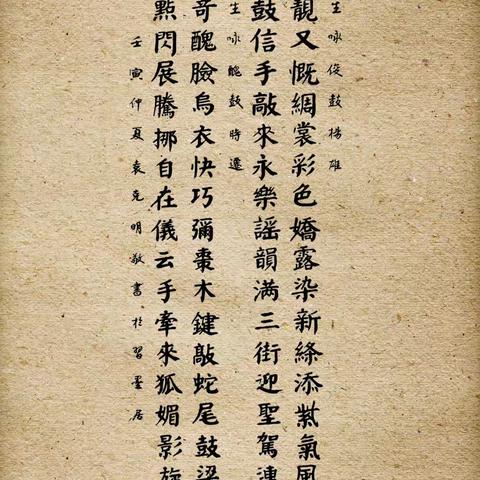 生咏俊鼓楊雄
靚又慨綢裳彩色嬌露染新絳添紫氣風
鼓信手敲來永樂謠韻满三街迎聖駕
生咏醜鼓時遷
奇醜臉烏衣快巧彌棗木鍵敲蛇尾鼓梁
點閃展騰挪自在儀云手牽來狐媚影
壬寅仲夏袁克明敬書於習墨居